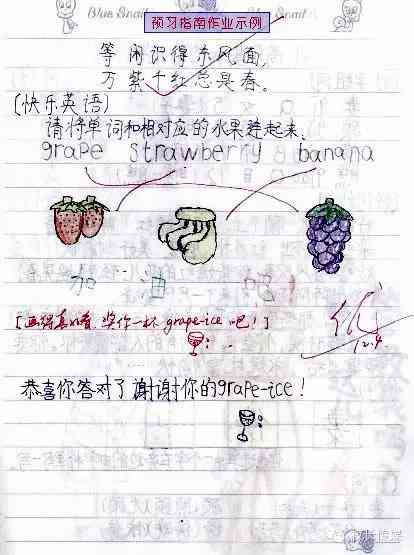 Blue Snail
预习指南作业示例
等闲识得东风面,
万紫千红总是春。
(快乐英语)
请将单词和相对应的水果连起来.
grape strawberry banana
加油吧!
[画得真好看,奖你一杯 grape-ice 吧!]
12.4
恭喜你答对了谢谢你的grape-ice!